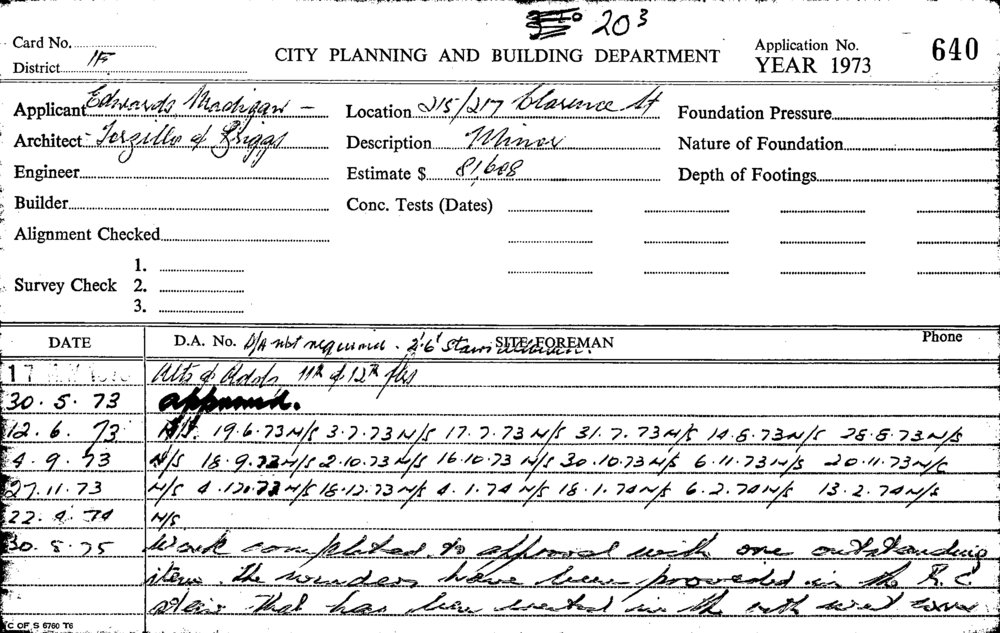 20³
Card No. CITY PLANNING AND BUILDING DEPARTMENT Application No. 640
District 1F YEAR 1973
Applicant Edwards Madigan — Location 215/217 Clarence St Foundation Pressure
Architect Torzillo & Briggs Description Minor Nature of Foundation
Engineer Estimate $ 81,608 Depth of Footings
Builder Conc. Tests (Dates)
Alignment Checked
1.
Survey Check 2.
3.
DATE D.A. No. D/A not required. 2'6" stairs SITE FOREMAN Phone
17 Alts & Adds 11th & 12th flrs
30.5.73 approved.
12.6.73 N/S. 19.6.73 N/S 3.7.73 N/S 17.7.73 N/S 31.7.73 N/S 14.8.73 N/S 28.8.73 N/S
4.9.73 N/S 18.9.73 N/S 2.10.73 N/S 16.10.73 N/S 30.10.73 N/S 6.11.73 N/S 20.11.73 N/S
27.11.73 N/S 4.12.73 N/S 18.12.73 N/S 4.1.74 N/S 18.1.74 N/S 6.2.74 N/S 13.2.74 N/S
22.4.74 N/S
30.5.75 Work completed to approval with one outstanding
item. The winders have been provided in the R.C.
stair that has been erected in the
C OF S 6760 T6